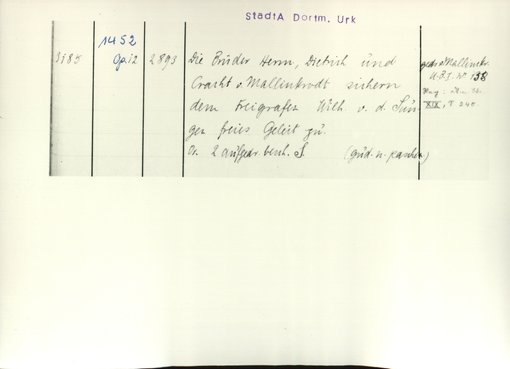 StadtA Dortm. Urk
3185
1452
2893
Die Brüder Herm, Dietrich und
Cracht v. Mallinkrodt sichern
dem Freigrafen Wilh. v. d. Sün-
ger freies Geleit zu.
Or. 2 aufgedr. besch. S.
gedr. Mallinkr.
U.B. I. Nr 138
XIX, 240